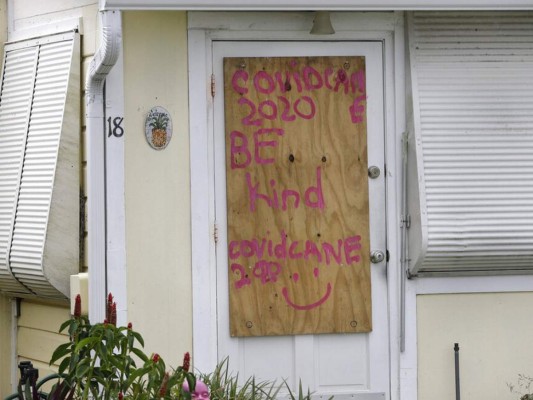 18
COVIDCANE
2020
BE
Kind
COVIDCANE
2020